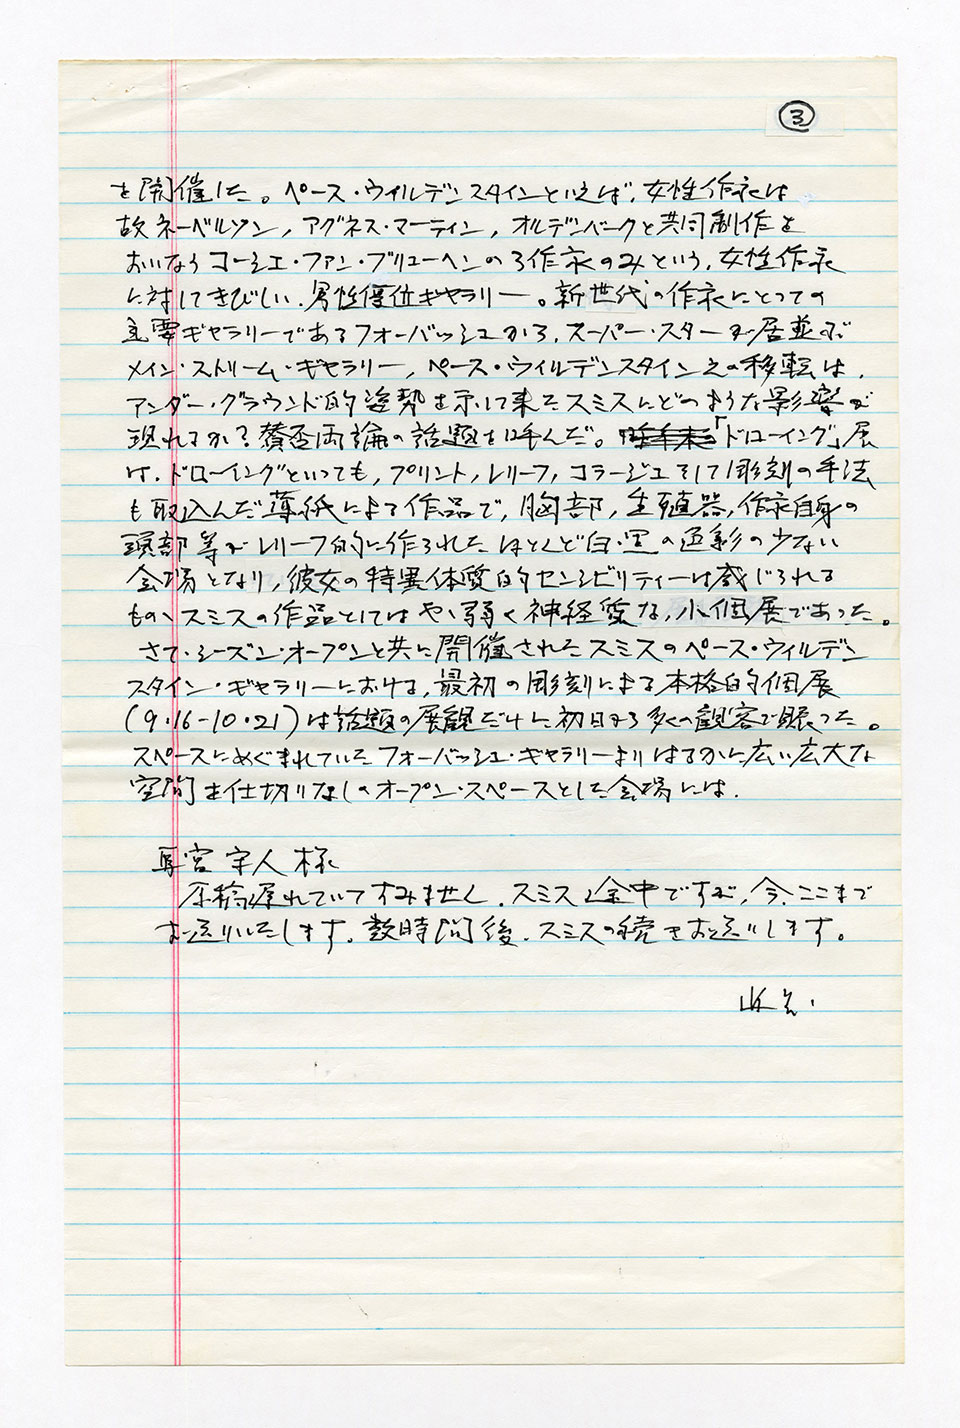 ③
を開催した。ペース・ウィルデンスタインといえば、女性作家は
故ネーベルソン，アグネス・マーティン，オルデンバークと共同制作を
おいなうコーシェ・ファン・ブリューヘンの3作家のみという，女性作家
に対してきびしい、男性優位ギャラリー。新世代の作家にとっての
主要ギャラリーであるフォーバッシュから，スーパー・スターが居並ぶ
メイン・ストリーム・ギャラリー，ペース・ウィルデンスタインえの移転は，
アンダー・グラウンド的姿勢を示して来たスミスにどのような影響が
現れるか？賛否両論の話題を呼んだ。「ドローイング」展
は，ドローイングといっても，プリント，レリーフ，コラージュそして彫刻の手法
も取込んだ薄紙による作品で，胸部，生殖器，作家自身の
頭部等がレリーフ的に作られたほとんど白・黒の色彩の少ない
会場となり，彼女の特異体質的センシビリティーは感じられる
もの、スミスの作品としてはやゝ弱く神経質な，小個展であった。
さて・シーズン・オープンと共に開催されたスミスのペース・ウィルデン
スタイン・ギャラリーにおける，最初の彫刻による本格的個展
(9・16-10・21)は話題の展観だけに初日から多くの観客で賑った。
スペースにめぐまれていたフォーバッシュ・ギャラリーよりはるかに広い広大な
空間を仕切りなしのオープン・スペースとした会場には，
宮 宇人 様
原稿遅れていてすみません．スミス途中ですが，今，ここまで
お送りいたします．数時間後，スミスの続きお送りします。